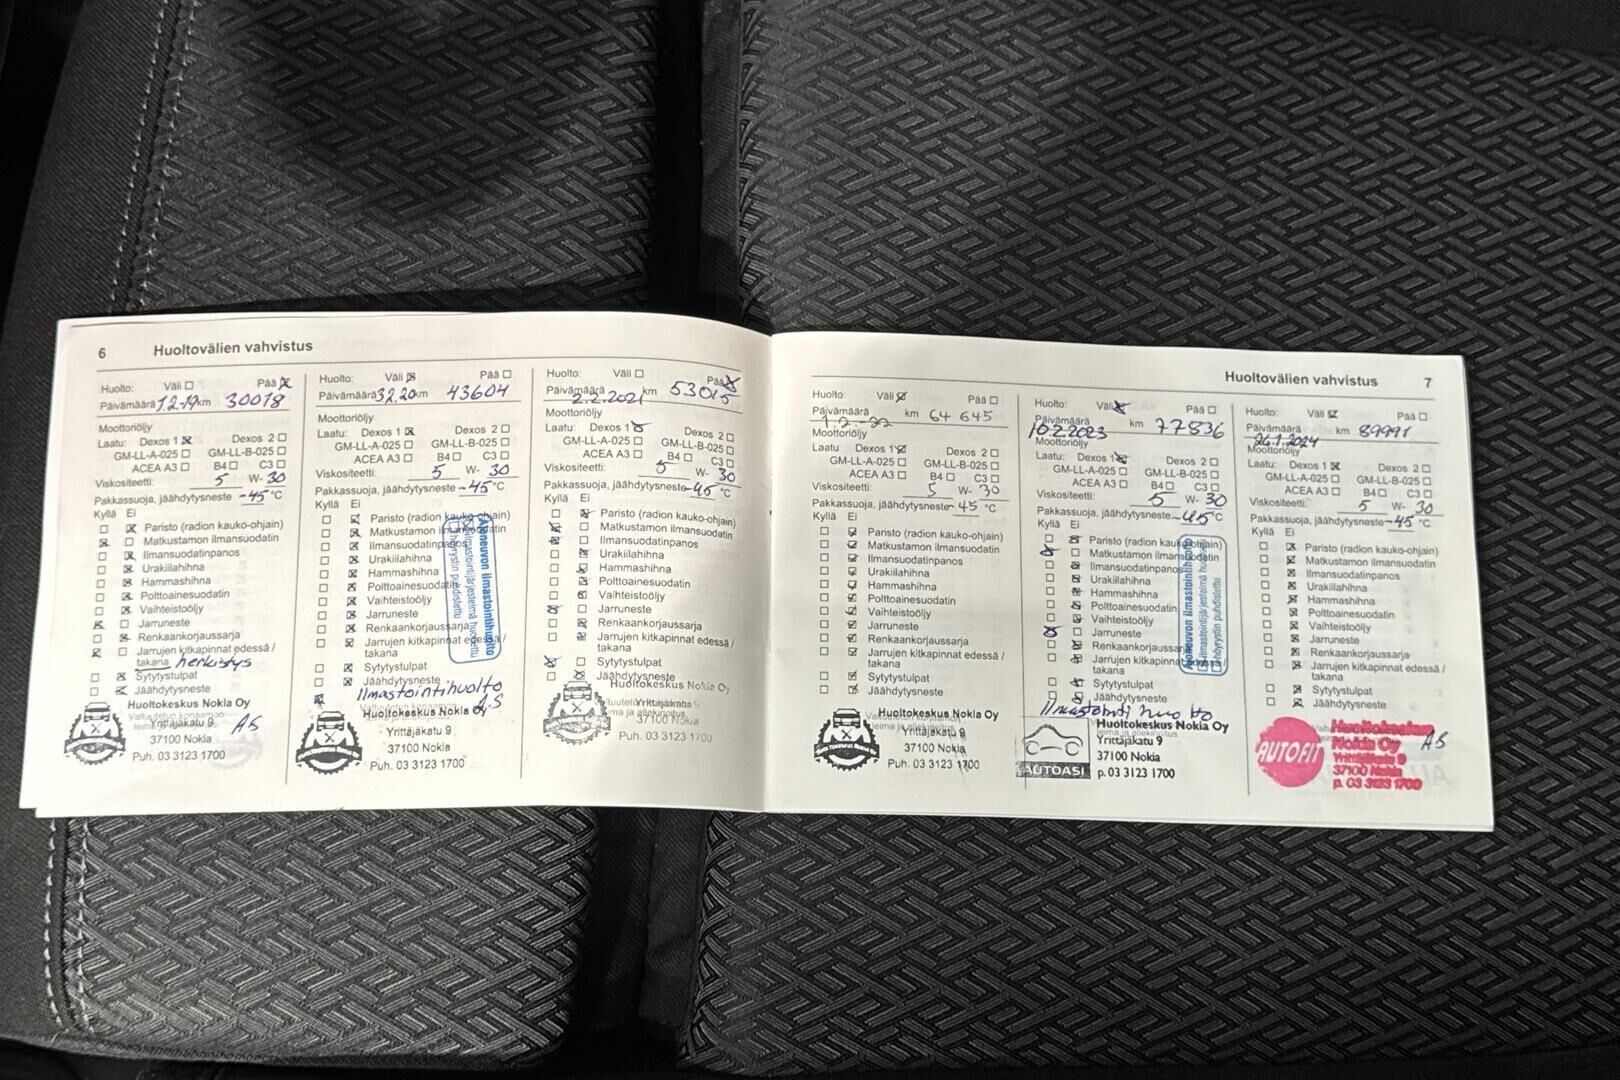 6 Huoltovälien vahvistus
Huolto: Väli Pää
Päivämäärä 1.2.19 km 30018
Moottoriöljy
Laatu: Dexos 1 Dexos 2
GM-LL-A-025 GM-LL-B-025
ACEA A3 B4 C3
Viskositeetti: 5 W- 30
Pakkassuoja, jäähdytysneste -45 °C
Kyllä Ei
Paristo (radion kauko-ohjain)
Matkustamon ilmansuodatin
Ilmansuodatinpanos
Urakiilahihna
Hammashihna
Polttoainesuodatin
Vaihteistoöljy
Jarruneste
Renkaankorjaussarja
Jarrujen kitkapinnat edessä /
takana henkistys
Sytytystulpat
Jäähdytysneste
Huoltokeskus Nokia Oy
Yrittäjäkatu 9 AS
37100 Nokia
Puh. 03 3123 1700
Huolto: Väli Pää
Päivämäärä 3.2.20 km 43604
Moottoriöljy
Laatu: Dexos 1 Dexos 2
GM-LL-A-025 GM-LL-B-025
ACEA A3 B4 C3
Viskositeetti: 5 W- 30
Pakkassuoja, jäähdytysneste -45 °C
Kyllä Ei
Paristo (radion kauko-ohjain)
Matkustamon ilmansuodatin
Ilmansuodatinpanos
Urakiilahihna
Hammashihna
Polttoainesuodatin
Vaihteistoöljy
Jarruneste
Renkaankorjaussarja
Jarrujen kitkapinnat edessä /
takana
Sytytystulpat
Jäähdytysneste
Ajoneuvon ilmastointihuolto
Ilmastointijärjestelmä huollettu
Höyrystin puhdistettu
Ilmastointihuolto
Huoltokeskus Nokia Oy AS
Yrittäjäkatu 9
37100 Nokia
Puh. 03 3123 1700
Huolto: Väli Pää
Päivämäärä 2.2.2021 km 53015
Moottoriöljy
Laatu: Dexos 1 Dexos 2
GM-LL-A-025 GM-LL-B-025
ACEA A3 B4 C3
Viskositeetti: 5 W- 30
Pakkassuoja, jäähdytysneste -45 °C
Kyllä Ei
Paristo (radion kauko-ohjain)
Matkustamon ilmansuodatin
Ilmansuodatinpanos
Urakiilahihna
Hammashihna
Polttoainesuodatin
Vaihteistoöljy
Jarruneste
Renkaankorjaussarja
Jarrujen kitkapinnat edessä /
takana
Sytytystulpat
Jäähdytysneste
Huoltokeskus Nokia Oy
Yrittäjäkatu 9
37100 Nokia
Puh. 03 3123 1700
Huoltovälien vahvistus 7
Huolto: Väli Pää
Päivämäärä 1.2.-22 km 64 645
Moottoriöljy
Laatu: Dexos 1 Dexos 2
GM-LL-A-025 GM-LL-B-025
ACEA A3 B4 C3
Viskositeetti: 5 W- 30
Pakkassuoja, jäähdytysneste -45 °C
Kyllä Ei
Paristo (radion kauko-ohjain)
Matkustamon ilmansuodatin
Ilmansuodatinpanos
Urakiilahihna
Hammashihna
Polttoainesuodatin
Vaihteistoöljy
Jarruneste
Renkaankorjaussarja
Jarrujen kitkapinnat edessä /
takana
Sytytystulpat
Jäähdytysneste
Huoltokeskus Nokia Oy
Yrittäjäkatu 9
37100 Nokia
Puh. 03 3123 1700
Huolto: Väli Pää
Päivämäärä 10.2.2023 km 77836
Moottoriöljy
Laatu: Dexos 1 Dexos 2
GM-LL-A-025 GM-LL-B-025
ACEA A3 B4 C3
Viskositeetti: 5 W- 30
Pakkassuoja, jäähdytysneste -45°C
Kyllä Ei
Paristo (radion kauko-ohjain)
Matkustamon ilmansuodatin
Ilmansuodatinpanos
Urakiilahihna
Hammashihna
Polttoainesuodatin
Vaihteistoöljy
Jarruneste
Renkaankorjaussarja
Jarrujen kitkapinnat edessä /
takana
Sytytystulpat
Jäähdytysneste
Ajoneuvon ilmastointihuolto
Ilmastointijärjestelmä huollettu
Höyrystin puhdistettu
Ilmastointi huolto
AUTOASI
Huoltokeskus Nokia Oy
Yrittäjäkatu 9
37100 Nokia
p. 03 3123 1700
Huolto: Väli Pää
Päivämäärä 26.1.2024 km 89991
Moottoriöljy
Laatu: Dexos 1 Dexos 2
GM-LL-A-025 GM-LL-B-025
ACEA A3 B4 C3
Viskositeetti: 5 W- 30
Pakkassuoja, jäähdytysneste -45 °C
Kyllä Ei
Paristo (radion kauko-ohjain)
Matkustamon ilmansuodatin
Ilmansuodatinpanos
Urakiilahihna
Hammashihna
Polttoainesuodatin
Vaihteistoöljy
Jarruneste
Renkaankorjaussarja
Jarrujen kitkapinnat edessä /
takana
Sytytystulpat
Jäähdytysneste
AUTOFIT
Huoltokeskus
Nokia Oy AS
Yrittäjäkatu 9
37100 Nokia
p. 03 3123 1700